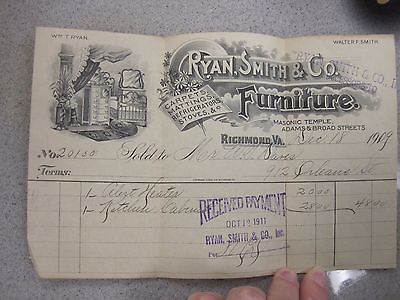 WM. T. RYAN.
WALTER F. SMITH.
RYAN, SMITH & CO.
CARPETS,
MATTINGS,
REFRIGERATORS,
STOVES, &c.
Furniture.
MASONIC TEMPLE,
ADAMS & BROAD STREETS
RICHMOND, VA. Dec 18 1909
No. 20100 Sold to Mr Davis
Terms: 912 Orleans St
1 - Heater 20 00
1 - Kitchen 28 00 48 00
RECEIVED PAYMENT
OCT 1911
RYAN, SMITH & CO., Inc.
Per